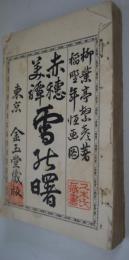 柳葉亭繁彦著
稲野年恒画
赤穂
美譚
雪の曙
東京 金玉堂蔵版